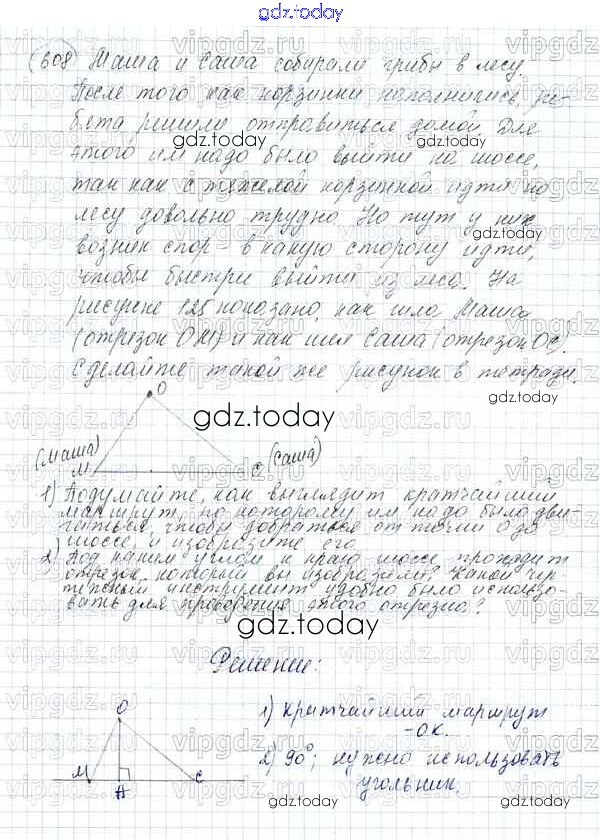 gdz.today
608) Маша и Саша собирали грибы в лесу.
После того как корзинки наполнились, ре-
бята решили отправиться домой. Для
этого им надо было выйти на шоссе,
так как с тяжелой корзинкой идти по
лесу довольно трудно. Но тут у них
возник спор - в какую сторону идти,
чтобы быстрее выйти из леса. На
рисунке 125 показано, как шла Маша
(отрезок ОМ) и как шел Саша (отрезок ОС).
Сделайте такой же рисунок в тетради.
О
gdz.today
(Маша)
М
С
(Саша)
1) Подумайте, как выглядит кратчайший
маршрут, по которому им надо было дви-
гаться, чтобы добраться от точки О до
шоссе, и изобразите его.
2) Под каким углом к краю шоссе проходит
отрезок, который вы изобразили? Какой чер
тежный инструмент удобно было использо-
вать для проведения этого отрезка?
gdz.today
Решение:
О
М
Н
С
1) кратчайший маршрут
- ОК.
2) 90°; нужно использовать
угольник.
gdz.today
gdz.today